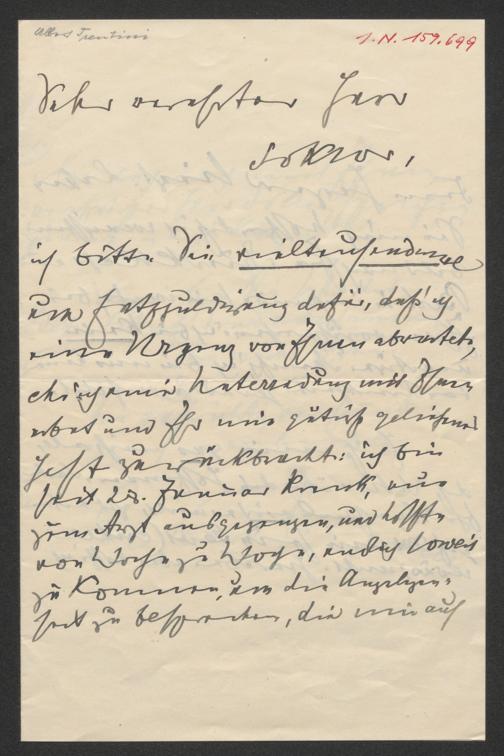 Albert Trentini
I.N. 159.699
Sehr verehrter Herr
Doktor,
ich bitte Sie vieltausendmal
um Entschuldigung dafür, daß ich
eine Urgenz von Ihnen abwartete,
ehe ich eine Unterredung mit Ihnen
erbat und Ihr mir gütigst geliehenes
Heft zurückbrachte: ich bin
seit 28. Januar krank, nur
zum Arzt ausgegangen, und hoffte
von Woche zu Woche, endlich soweit
zu kommen, um die Angelegen-
heit zu besprechen, die mir auf